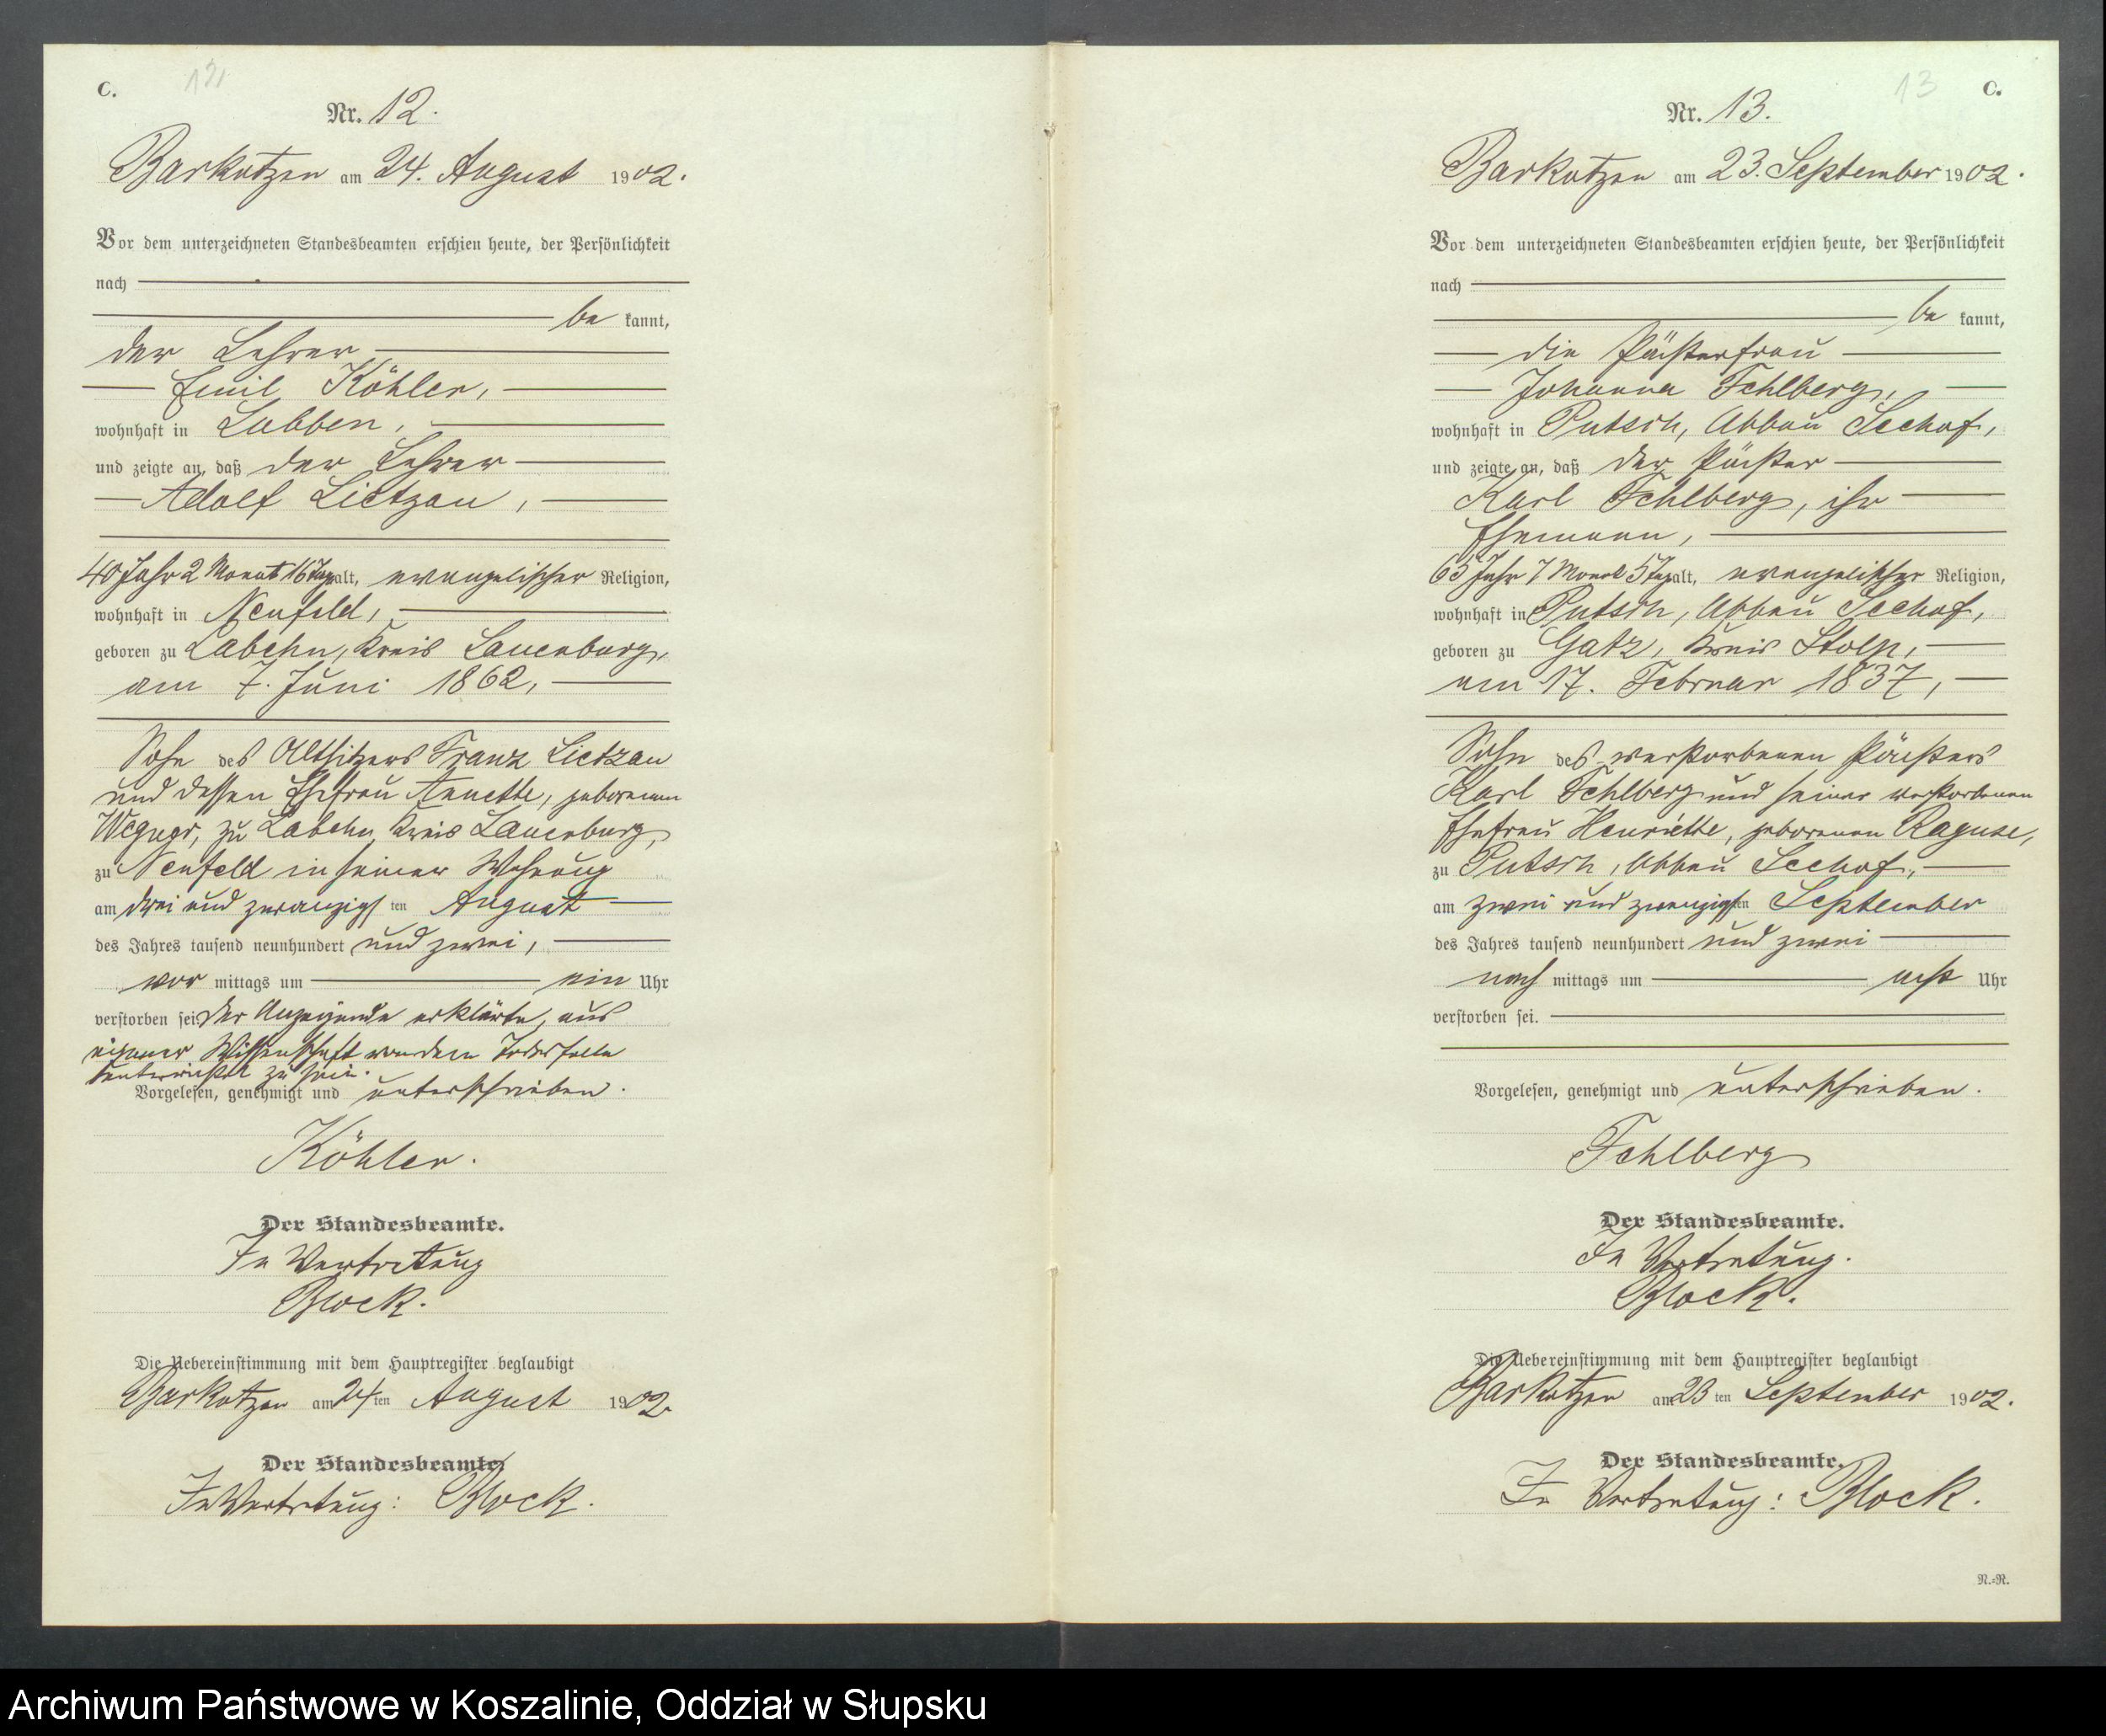 C. 12
Nr. 12.
Barkotzen am 24. August 1902.
Vor dem unterzeichneten Standesbeamten erschien heute, der Persönlichkeit
nach
be kannt,
der Lehrer
Emil Köhler,
wohnhaft in Lübben,
und zeigte an, daß der Lehrer
Adolf Lietzau,
40 Jahr 2 Monat 16 Tag alt, evangelischer Religion,
wohnhaft in Neufeld,
geboren zu Labehn, Kreis Lauenburg,
am 7. Juni 1862,
Sohn des Altsitzers Franz Lietzau
und dessen Ehefrau Annette, geborenen
Wegner, zu Labehn Kreis Lauenburg,
zu Neufeld in seiner Wohnung
am drei und zwanzigs ten August
des Jahres tausend neunhundert und zwei,
vor mittags um ein Uhr
verstorben sei. Der Anzeigende erklärte, aus
eigener Wissenschaft von dem Todesfalle
unterrichtet zu sein.
Vorgelesen, genehmigt und unterschrieben.
Köhler.
Der Standesbeamte.
In Vertretung
Block.
Die Uebereinstimmung mit dem Hauptregister beglaubigt
Barkotzen am 24 ten August 1902.
Der Standesbeamte.
In Vertretung: Block.
13 C.
Nr. 13.
Barkotzen am 23. September 1902.
Vor dem unterzeichneten Standesbeamten erschien heute, der Persönlichkeit
nach
be kannt,
die Pächterfrau
Johanna Fehlberg,
wohnhaft in Putsch, Abbau Seehof,
und zeigte an, daß der Pächter
Karl Fehlberg, ihr
Ehemann,
65 Jahr 7 Monat 5 Tag alt, evangelischer Religion,
wohnhaft in Putsch, Abbau Seehof,
geboren zu Gatz, Kreis Stolp,
am 17. Februar 1837,
Sohn des verstorbenen Pächters
Karl Fehlberg und seiner verstorbenen
Ehefrau Henriette, geborenen Raguse,
zu Putsch, Abbau Seehof,
am zwei und zwanzigsten September
des Jahres tausend neunhundert und zwei
nach mittags um acht Uhr
verstorben sei.
Vorgelesen, genehmigt und unterschrieben.
Fehlberg
Der Standesbeamte.
In Vertretung.
Block.
Die Uebereinstimmung mit dem Hauptregister beglaubigt
Barkotzen am 23 ten September 1902.
Der Standesbeamte.
In Vertretung: Block.
N.=R.
Archiwum Państwowe w Koszalinie, Oddział w Słupsku